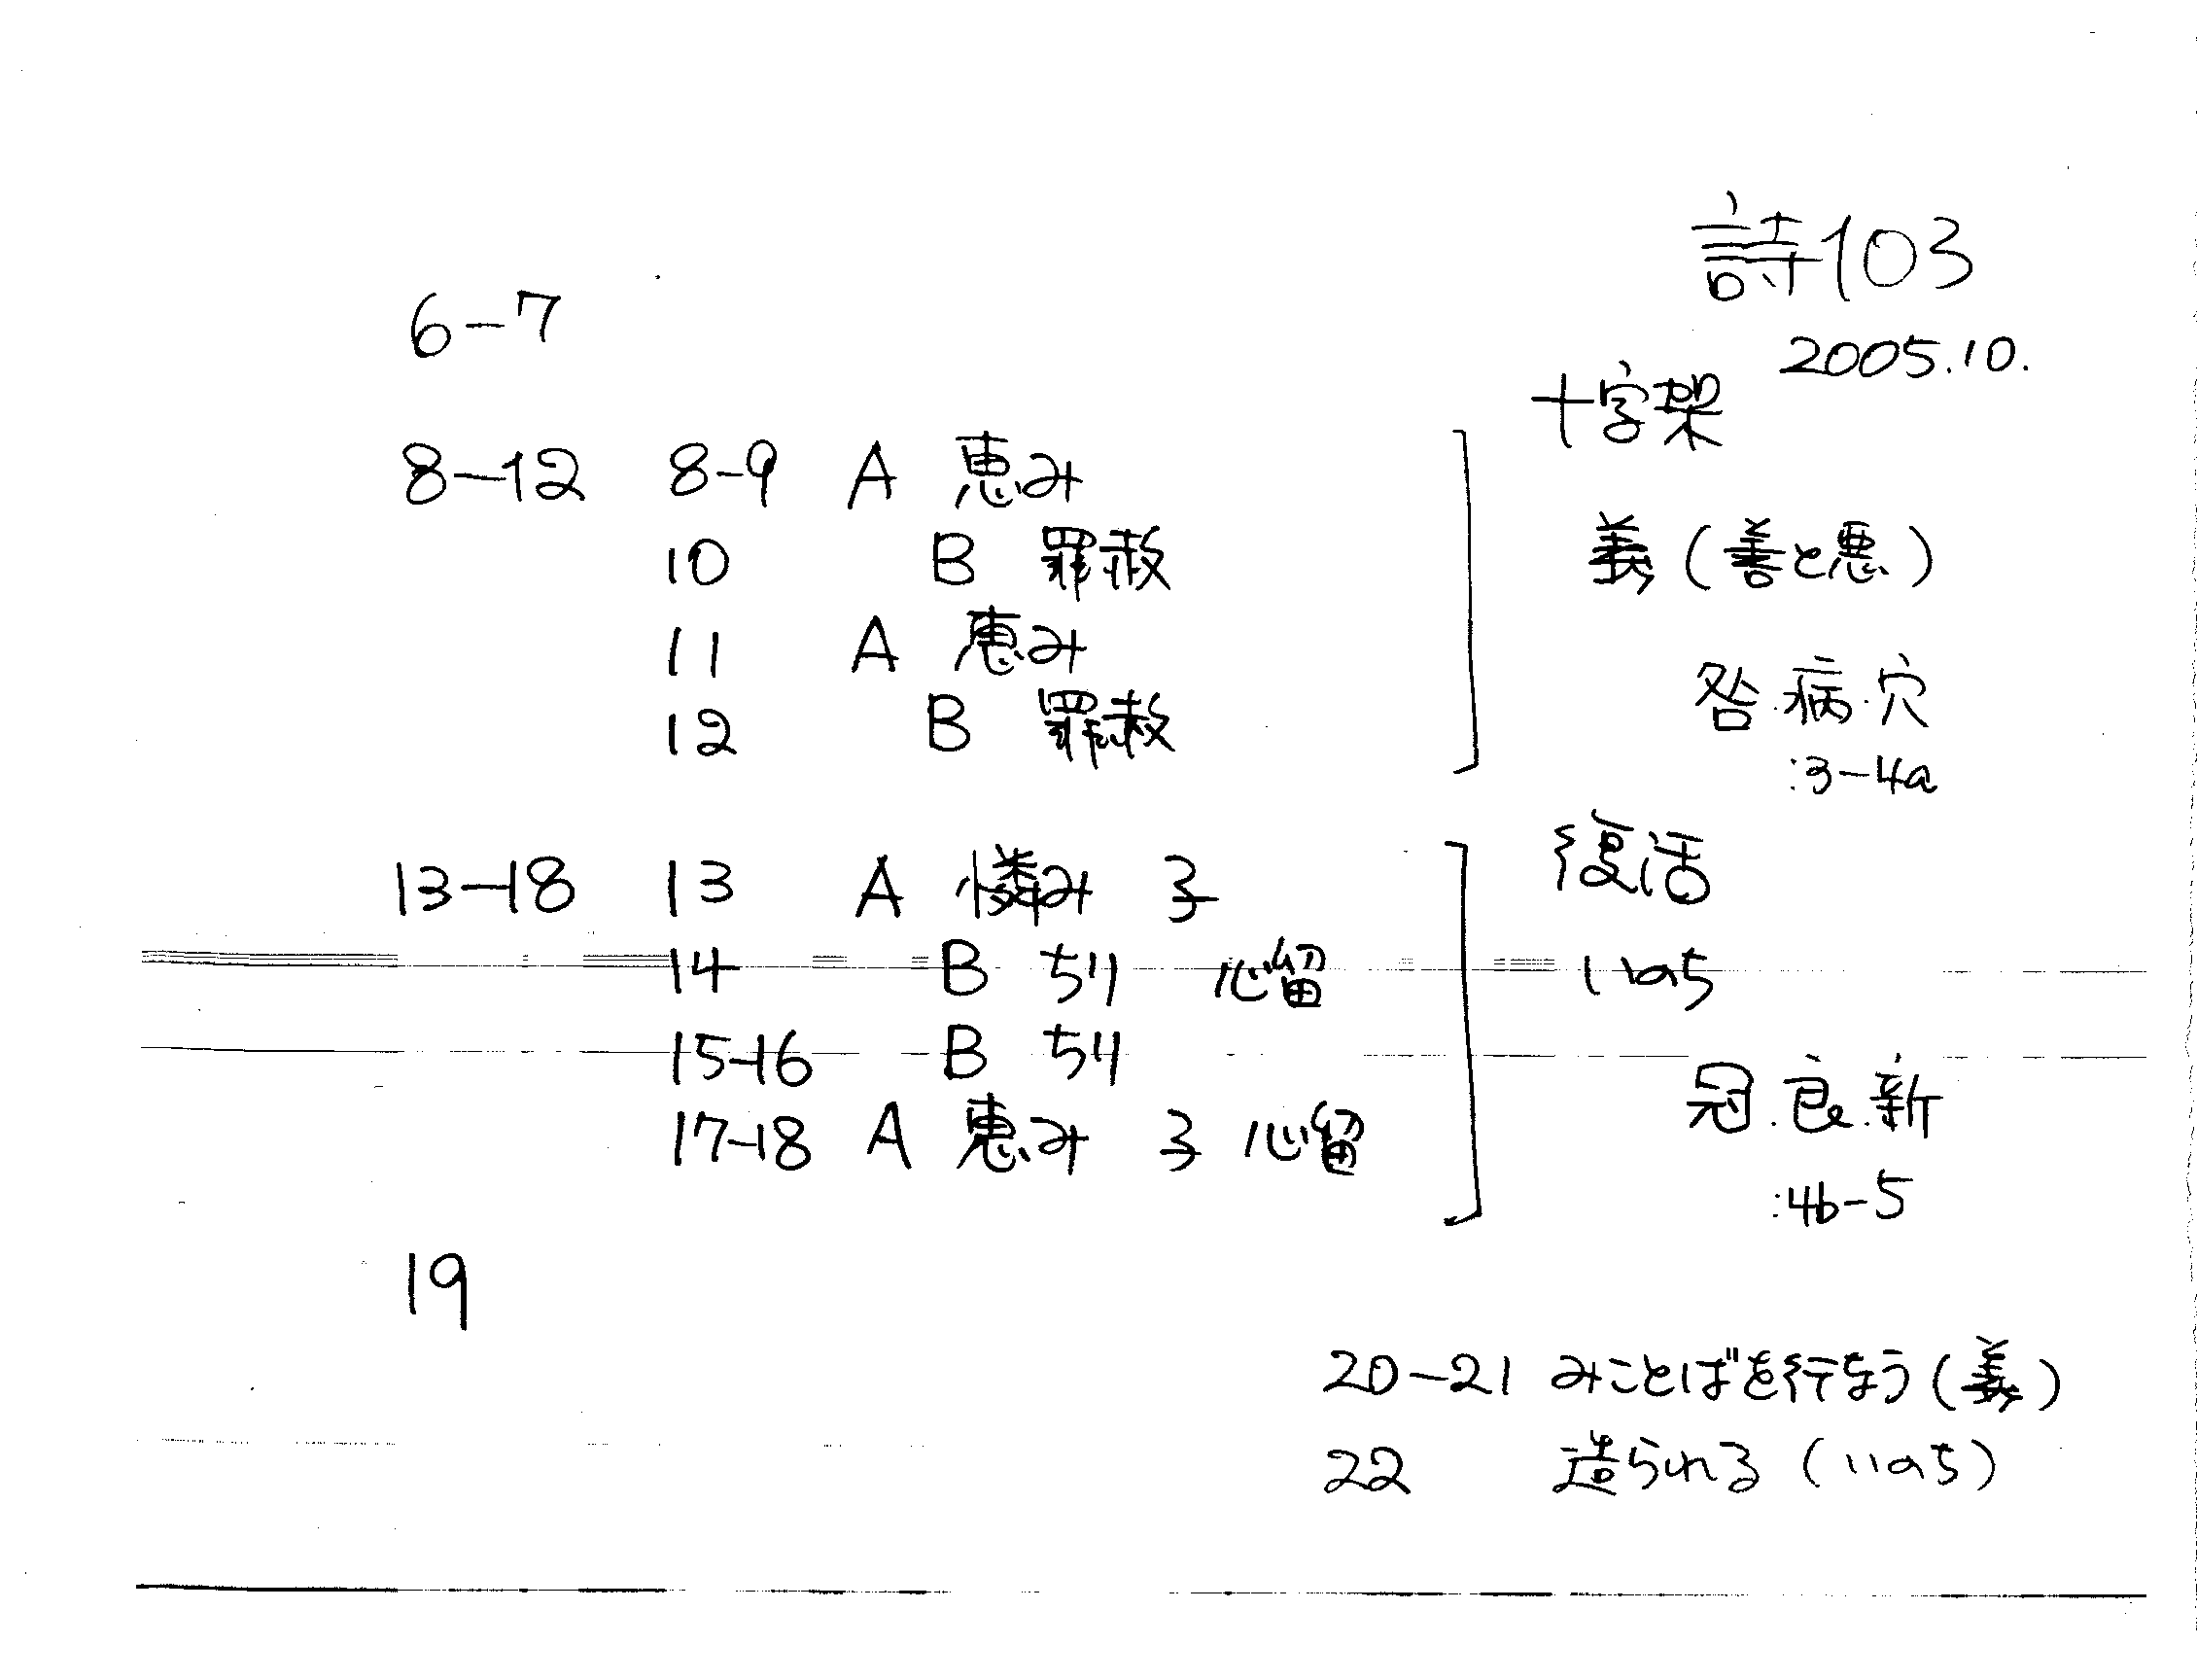 詩103
2005.10.
6-7
十字架
8-12 8-9 A 恵み
10 B 罪赦
義(善と悪)
11 A 恵み
12 B 罪赦
咎.病.穴
:3-4a
復活
13-18 13 A 憐み 子
14 B ちり 心留
いのち
15-16 B ちり
17-18 A 恵み 子 心留
冠.良.新
:4b-5
19
20-21 みことばを行なう(義)
22 造られる(いのち)